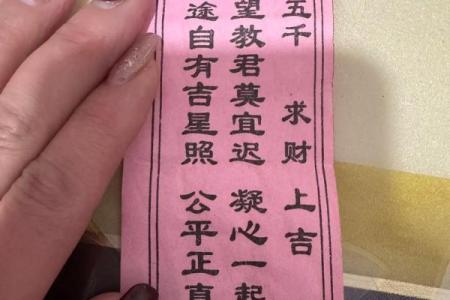 五千 求财 上吉
望教君莫宜迟 凝心一起
途自有吉星照 公平正直